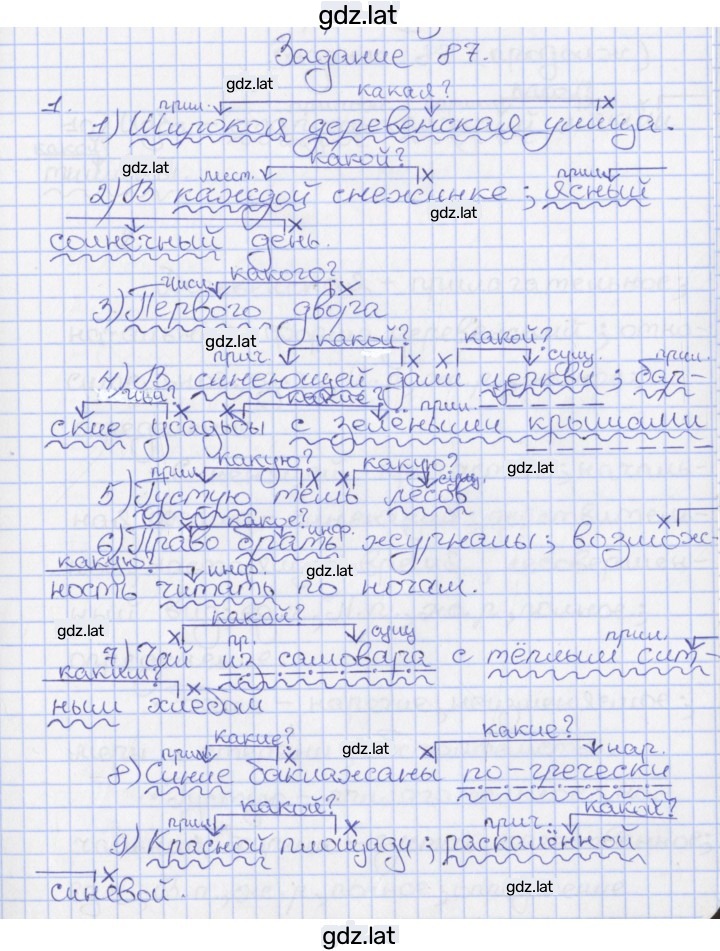 gdz.lat
Задание 87.
gdz.lat
какая?
1. прил.
1) Широкая деревенская улица.
какой?
gdz.lat мест. прил.
2) В каждой снежинке; ясный
gdz.lat
солнечный день.
числ. какого?
3) Первого двора
gdz.lat какой? какой?
прич. сущ. прил.
4) В синеющей дали церкви; бар-
чьи? какие? прил.
ские усадьбы с зелёными крышами
какую? какую? gdz.lat
прил. сущ.
5) Густую тень лесов
какое? инф.
6) Право брать журналы; возмож-
какую? инф. gdz.lat
ность читать по ночам.
какой?
gdz.lat пр. сущ. прил.
7) Чай из самовара с тёплым сит-
каким?
ным хлебом
какие? gdz.lat какие?
прил. нар.
8) Синие баклажаны по-гречески
какой? какой?
прил. прич.
9) Красной площади; раскалённой
синевой. gdz.lat
gdz.lat